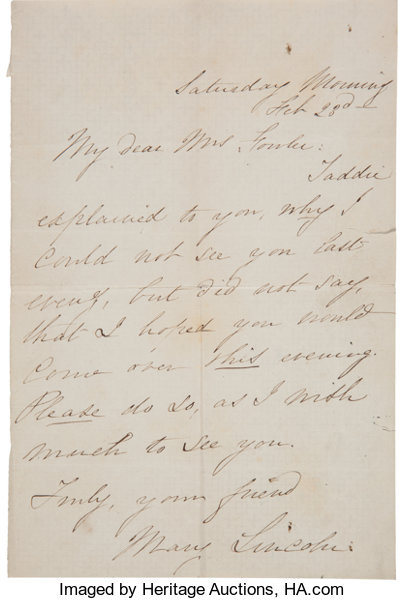 Saturday Morning
Feb 23d
My dear Mrs Fowler:
Taddie
explained to you, why I
could not see you last
eveng, but did not say,
that I hoped you would
come over this evening.
Please do so, as I wish
much to see you.
Truly, your friend
Mary Lincoln.
Imaged by Heritage Auctions, HA.com